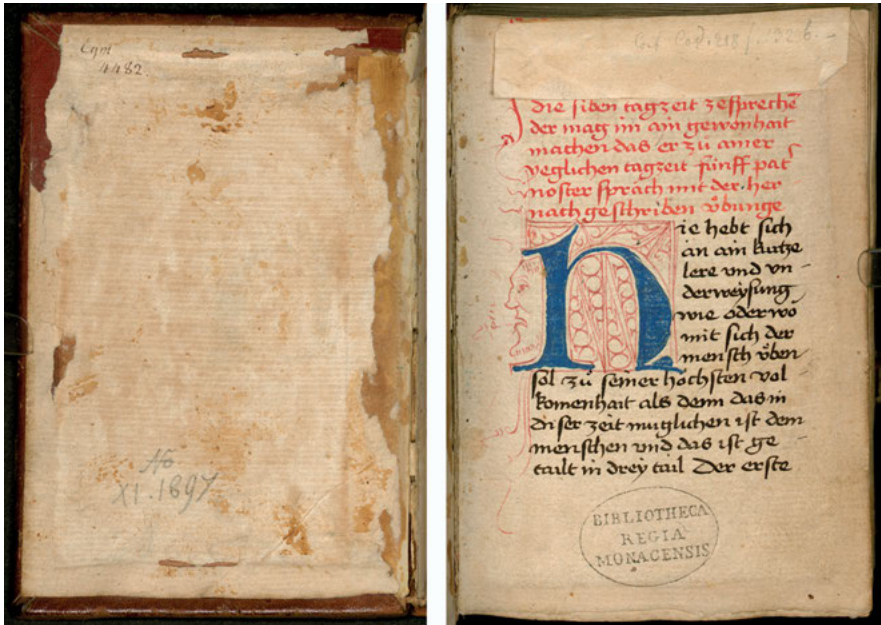 Cgm
4482.
No
XI. 1897
Cod. 218
die siben tagzeit zesprechē
der mag im ain gewonhait
machen das er zu ainer
yeglichen tagzeit fünff pat
noster spräch mit der her
nach geschriben übunge
hie hebt sich
an ain kurtze
lere vnd vn
derweysung
wie oder wo
mit sich der
mensch üben
sol zů seiner hochsten vol
komenhait als denn das in
diser zeit muglichen ist dem
menschen vnd das ist ge
tailt in drey tail Der erste
BIBLIOTHECA
REGIA
MONACENSIS